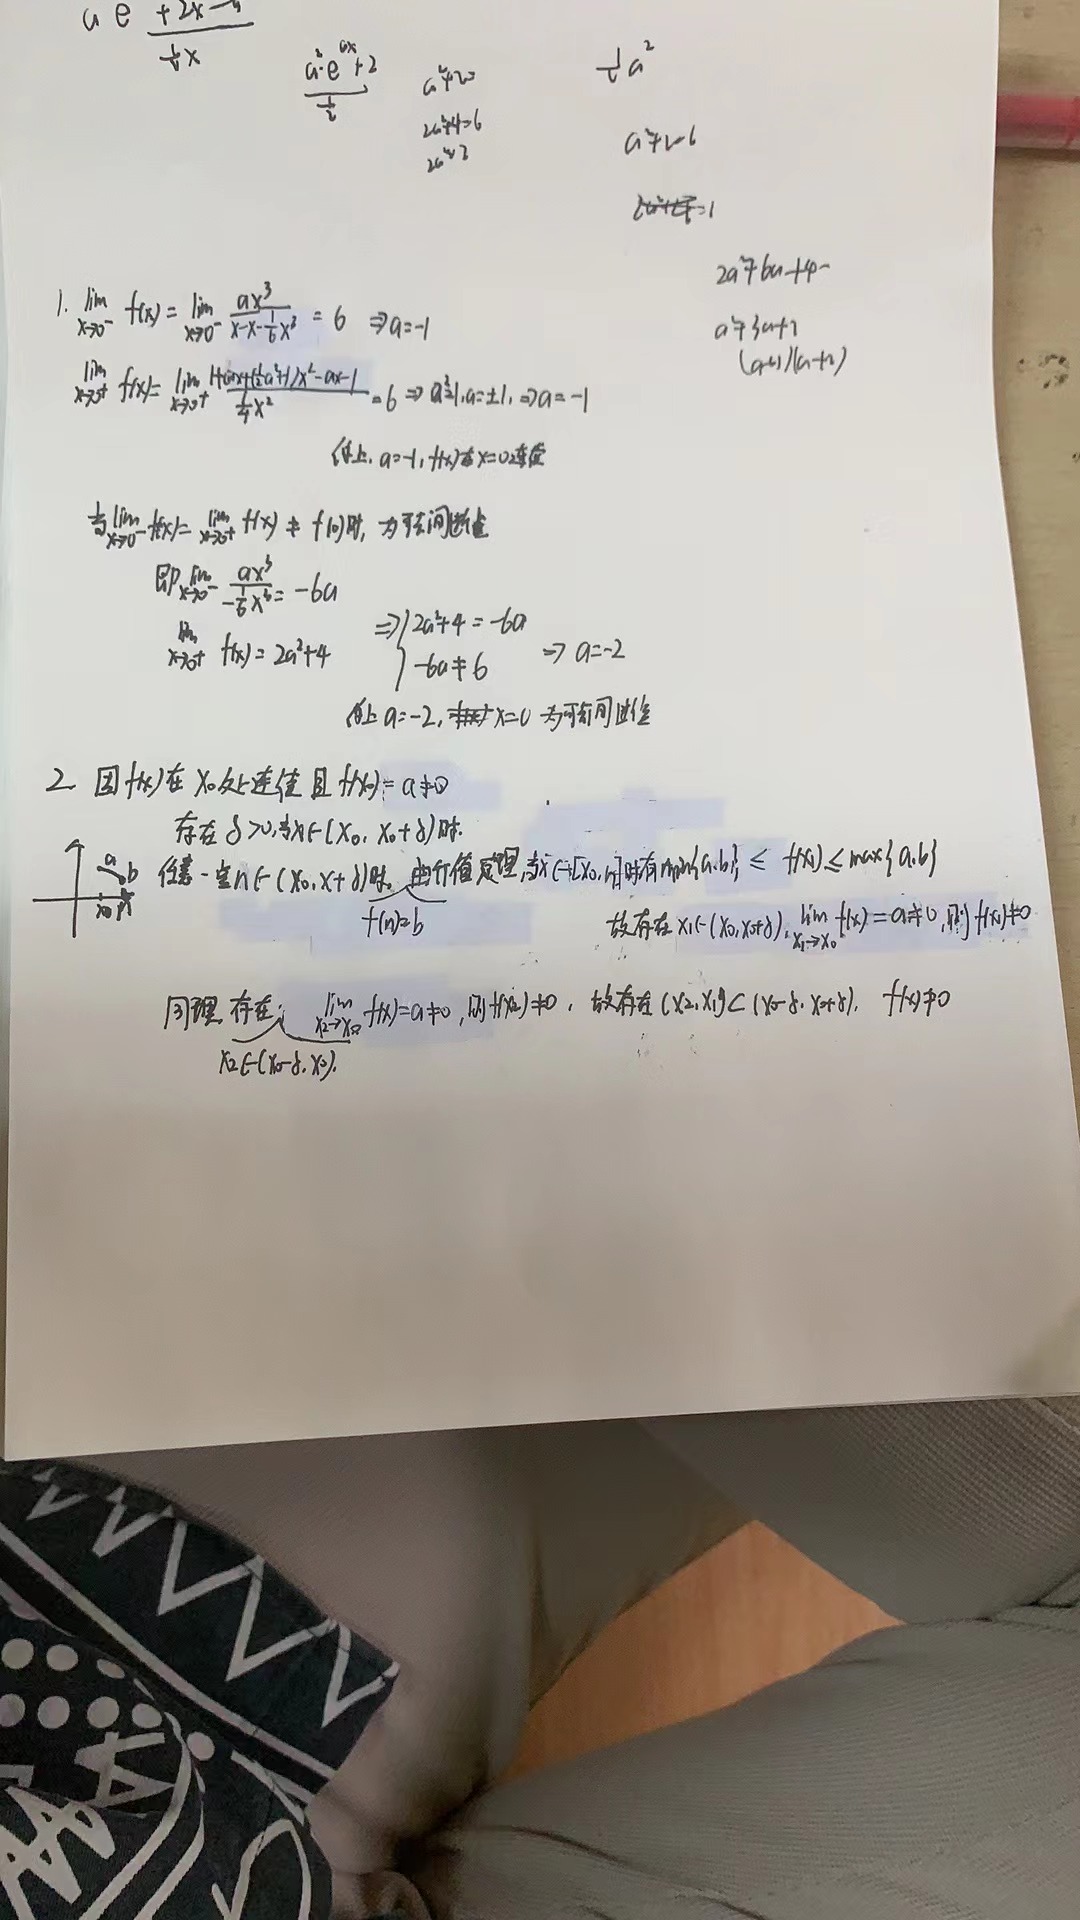 a e + 2x - a
a²·e^{ax}+2
½
a²+2=
2a²+4=6
½a²
a²+2=6
=1
2a²+6a+4=
a²+3a+2
(a+1)(a+2)
1. lim x→0⁻ f(x) = lim x→0⁻ ax³/(x-x-⅙x³) = 6 ⇒ a=-1
lim x→0⁺ f(x) = lim x→0⁺ (1+ax+(½a²+1)x²-ax-1)/(¼x²) = 6 ⇒ a²=1, a=±1, ⇒ a=-1
综上, a=-1, f(x)在x=0连续
当 lim x→0⁻ f(x) = lim x→0⁺ f(x) ≠ f(0)时, 为可去间断点
即 lim x→0⁻ ax³/(-⅙x³) = -6a
lim x→0⁺ f(x) = 2a²+4
⇒ { 2a²+4 = -6a
-6a ≠ 6
⇒ a=-2
综上 a=-2, x=0 为可去间断点
2. 因f(x)在 x₀处连续且 f(x₀)=a≠0
存在 δ>0, 当x∈(x₀, x₀+δ)时.
a
b
x₀ n
任意一定n∈(x₀, x+δ)时, 由介值定理, 当x∈[x₀, n]时有 min{a,b} ≤ f(x) ≤ max{a,b}
f(n)=b
故存在 x₁∈(x₀, x₀+δ), lim x₁→x₀ f(x)=a≠0, 则 f(x₁)≠0
同理, 存在 lim x₂→x₀ f(x)=a≠0, 则 f(x₂)≠0, 故存在(x₂, x₁)⊂(x₀-δ, x₀+δ), f(x)≠0
x₂∈(x₀-δ, x₀).